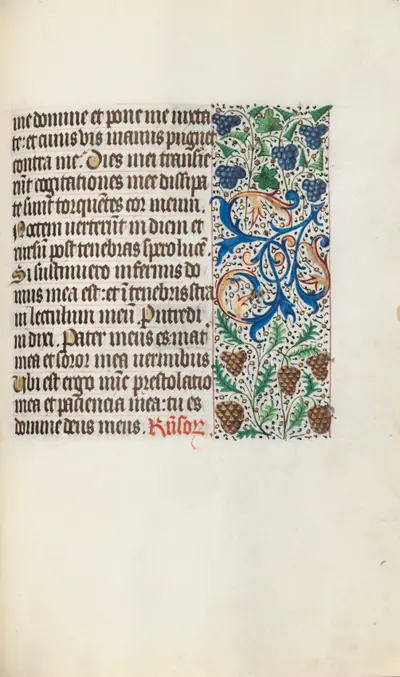 me domine et pone me iuxta
te: et cuius vis manus pugnet
contra me. Dies mei transie
rūt cogitationes mee dissipa
te sunt torquētes cor meum.
Noctem uerterūt in diem et
rursū post tenebras spero lucē
Si sustinuero infernus do
mus mea est: et ī tenebris stra
ui lectulum meū Putredi
ni dixi. Pater meus es: mat̄
mea et soror mea uermibus
Ubi est ergo nūc prestolatio
mea et paciencia mea: tu es
domine deus meus.